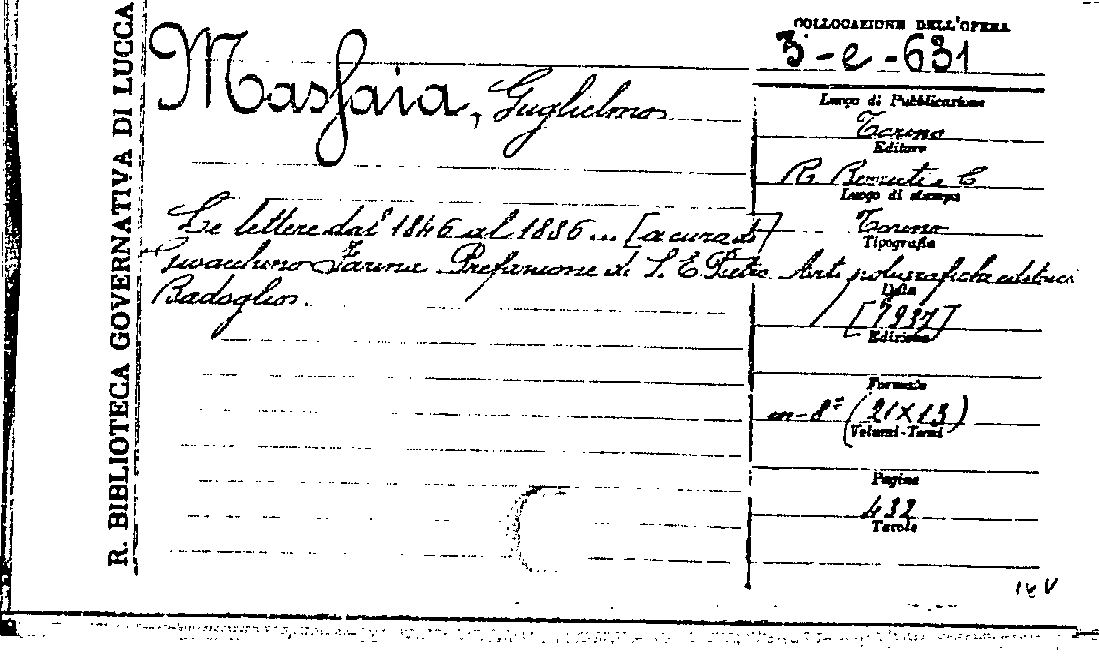 R. BIBLIOTECA GOVERNATIVA DI LUCCA
COLLOCAZIONE DELL'OPERA
3-e-631
Massaia, Guglielmo
Luogo di Pubblicazione
Torino
Editore
R. Berruti e C
Luogo di stampa
Torino
Tipografia
Le lettere dal 1846 al 1886... [a cura di]
Gioachino Farina Prefazione di S. E. Pietro
Badoglio.
Arti poligrafiche editrici
Data
[1937]
Edizione
Formato
in-8° (21X13)
Volumi-Tomi
Pagine
432
Tavole